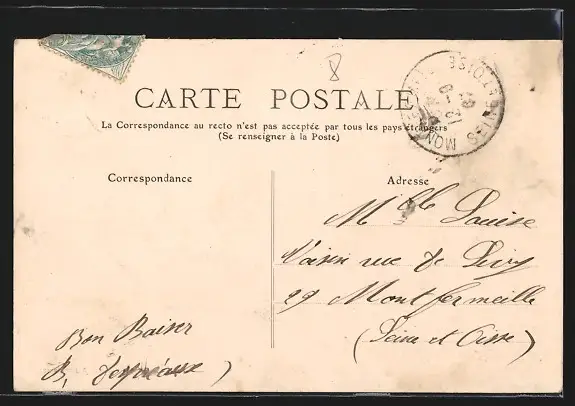 8
CARTE POSTALE
La Correspondance au recto n'est pas acceptée par tous les pays étrangers
(Se renseigner à la Poste)
SEINE-ET-OISE
Correspondance
Adresse
Mlle Louise
rue de
29 Montfermeille
(Seine et Oise)
Bon Baiser
B.